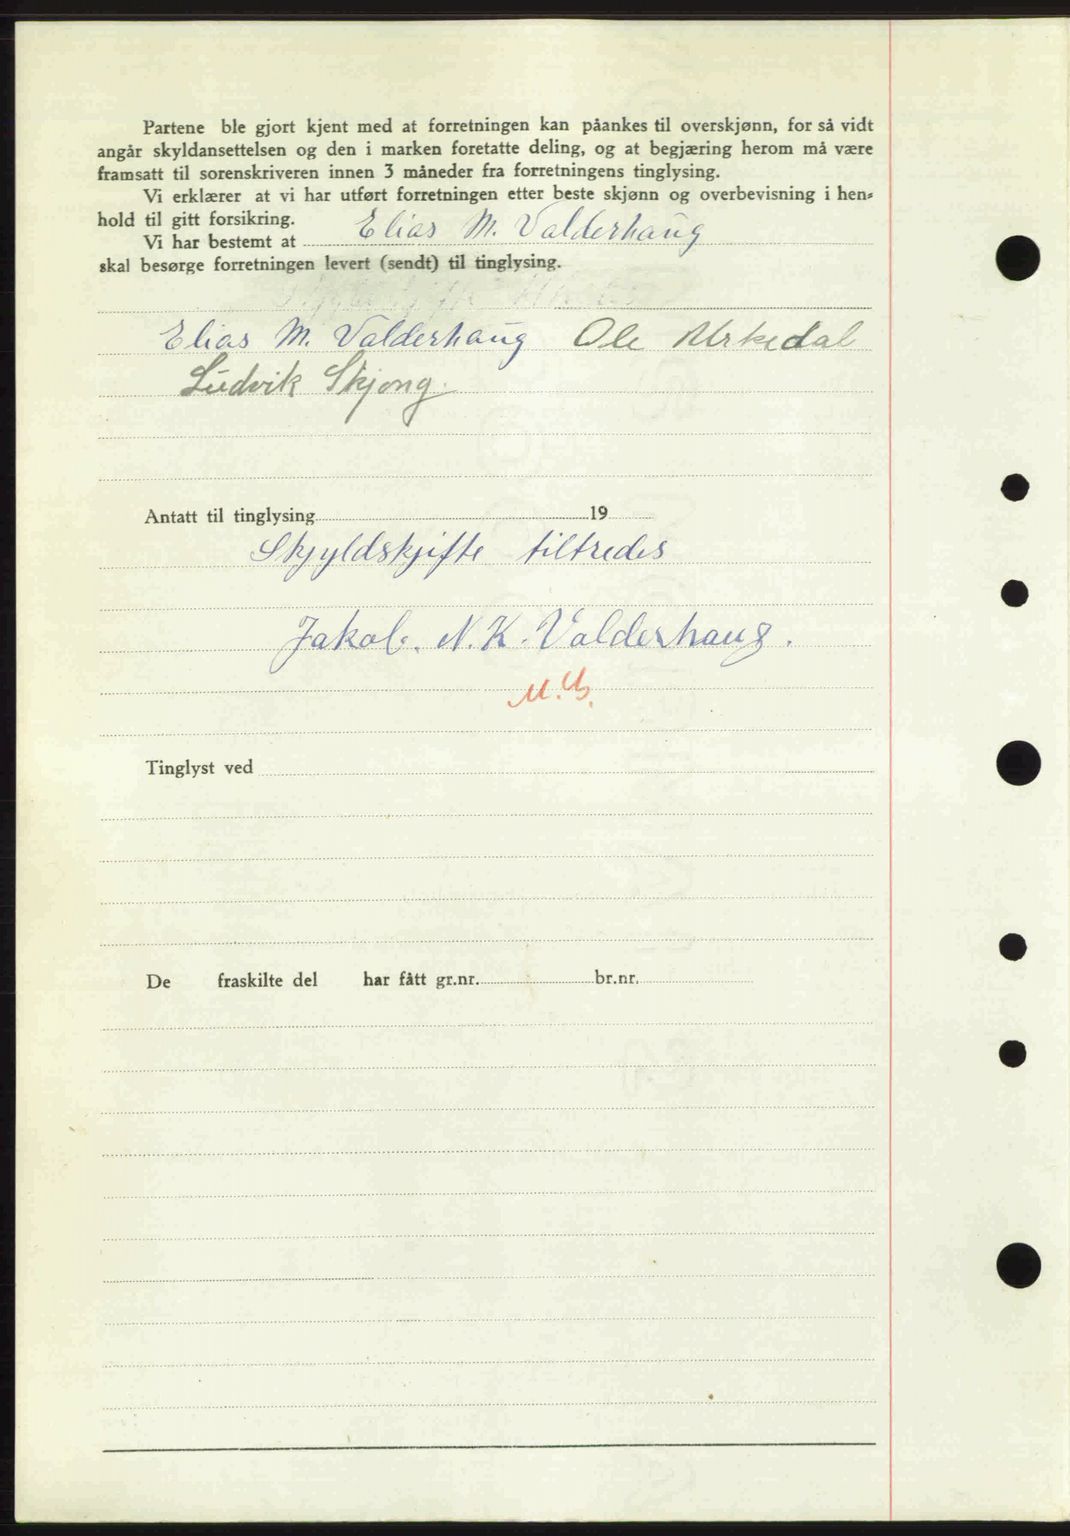 Partene ble gjort kjent med at forretningen kan påankes til overskjønn, for så vidt
angår skyldansettelsen og den i marken foretatte deling, og at begjæring herom må være
framsatt til sorenskriveren innen 3 måneder fra forretningens tinglysing.
Vi erklærer at vi har utført forretningen etter beste skjønn og overbevisning i hen-
hold til gitt forsikring.
Vi har bestemt at Elias M. Valderhaug
skal besørge forretningen levert (sendt) til tinglysing.
Elias M. Valderhaug Ole Urkedal
Ludvik Skjong.
Antatt til tinglysing 19
Skjyldskjifte tiltredes
Jakob. N. K. Valderhaug.
Tinglyst ved
De fraskilte del har fått gr.nr. br.nr.